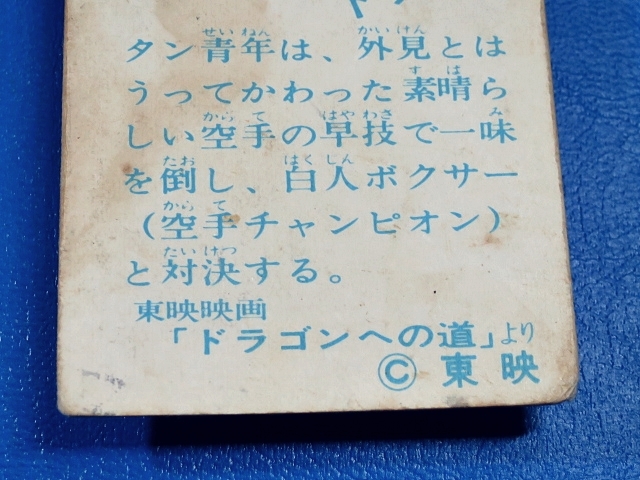 タン青年は、外見とは
うってかわった素晴ら
しい空手の早技で一味
を倒し、白人ボクサー
(空手チャンピオン)
と対決する。
東映映画
「ドラゴンへの道」より
©東映